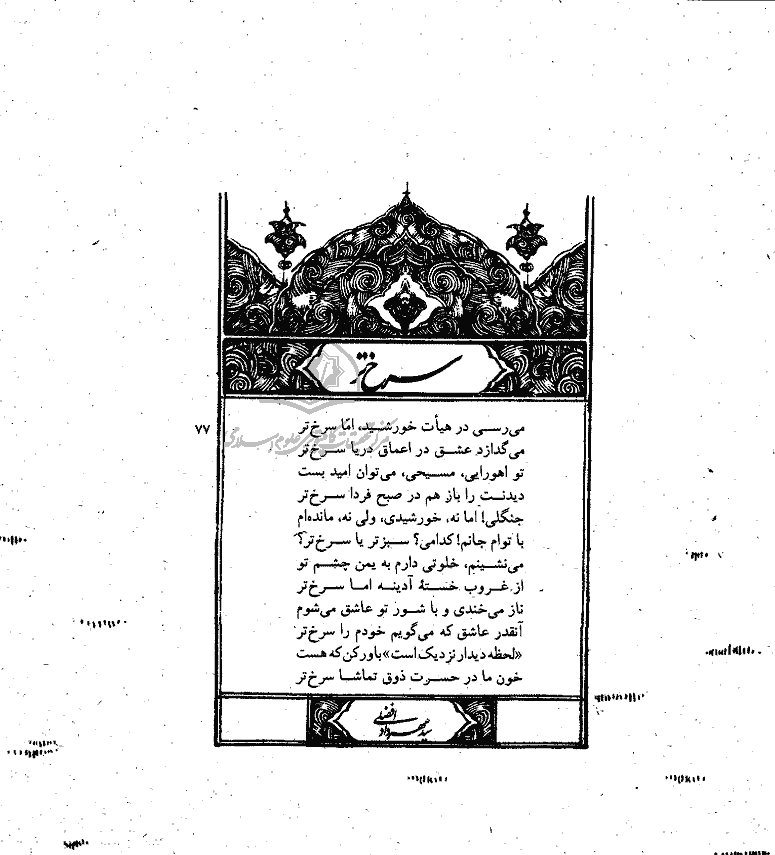 سرخ‌تر
۷۷
می‌رسی در هیأت خورشید، امّا سرخ‌تر
می‌گدازد عشق در اعماق دریا سرخ‌تر
تو اهورایی، مسیحی، می‌توان امید بست
دیدنت را باز هم در صبح فردا سرخ‌تر
جنگلی! اما نه، خورشیدی، ولی نه، مانده‌ام
با توام جانم! کدامی؟ سبزتر یا سرخ‌تر؟
می‌نشینم، خلوتی دارم به یمن چشم تو
از غروب خستهٔ آدینه اما سرخ‌تر
ناز می‌خندی و با شور تو عاشق می‌شوم
آنقدر عاشق که می‌گویم خودم را سرخ‌تر
«لحظه دیدار نزدیک است» باور کن که هست
خون ما در حسرت ذوق تماشا سرخ‌تر
سید مهرداد افضلی